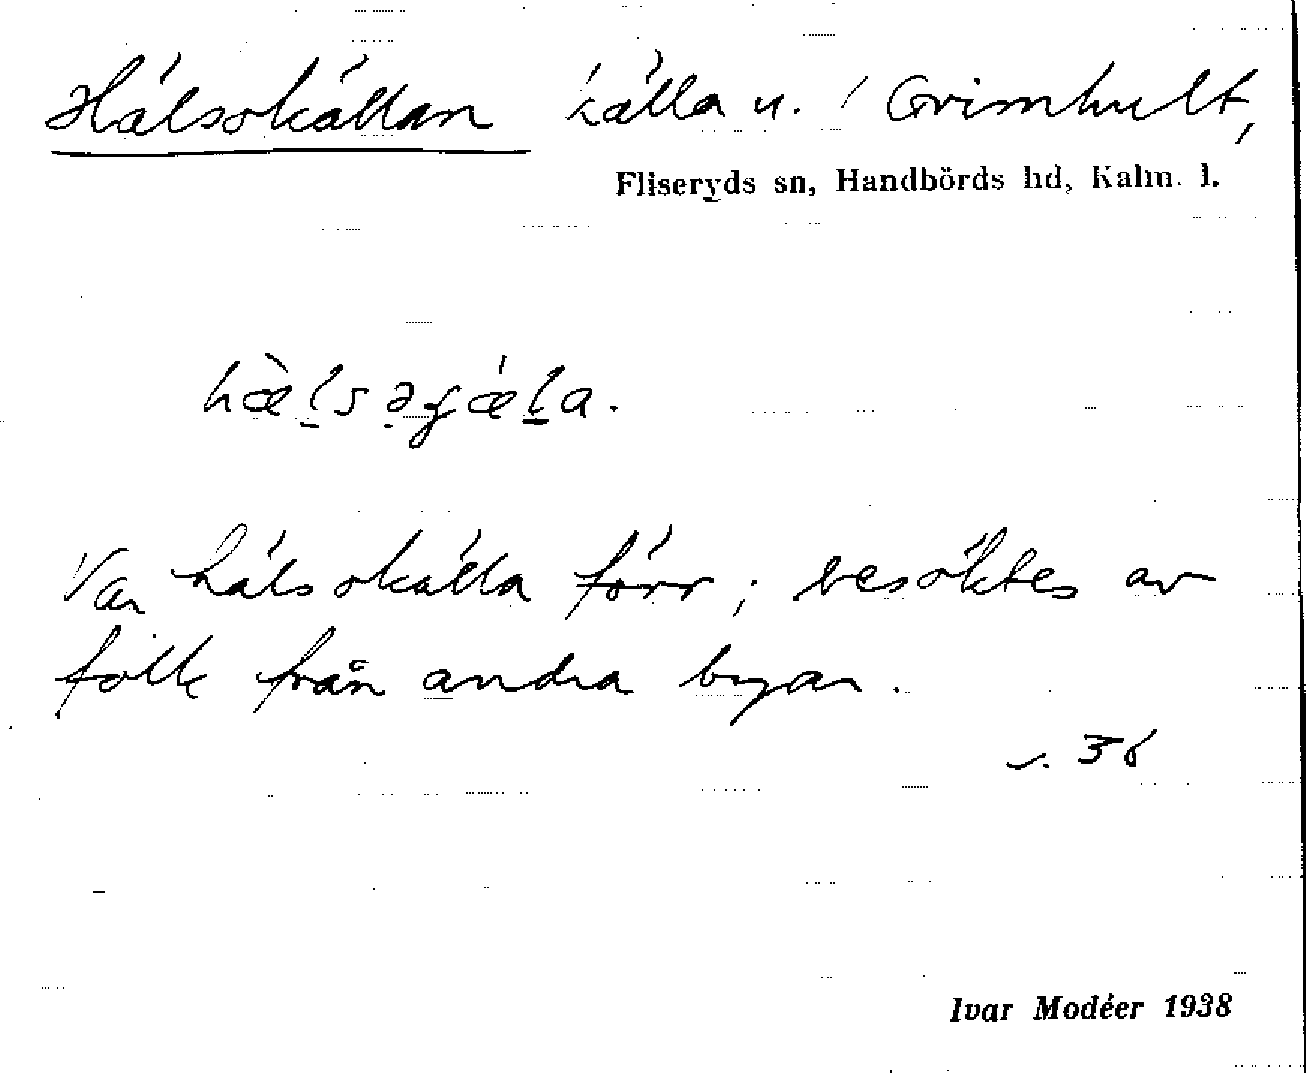 Hälsokällan källa u. / Grimhult,
Fliseryds sn, Handbörds hd, Kalm. l.
hæ̀lsəɟǽla.
Var hälsokälla förr; besöktes av
folk från andra byar.
s. 36
Ivar Modéer 1938